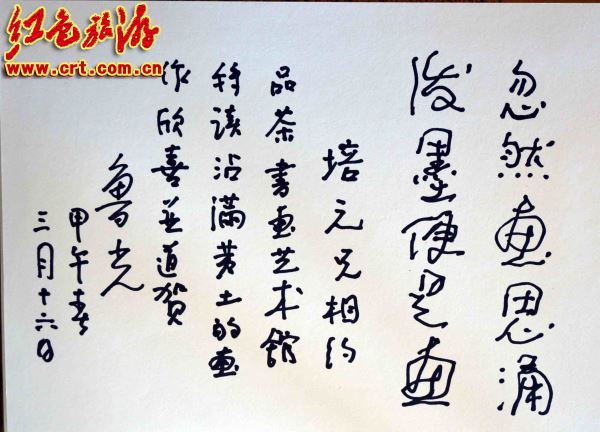 红色旅游
www.crt.com.cn
忽然画思涌
泼墨便是画
培元兄相约
品茶書画艺术館
拜读沾满黄土的画
作欣喜並道贺
鲁光
甲午春
三月十六日